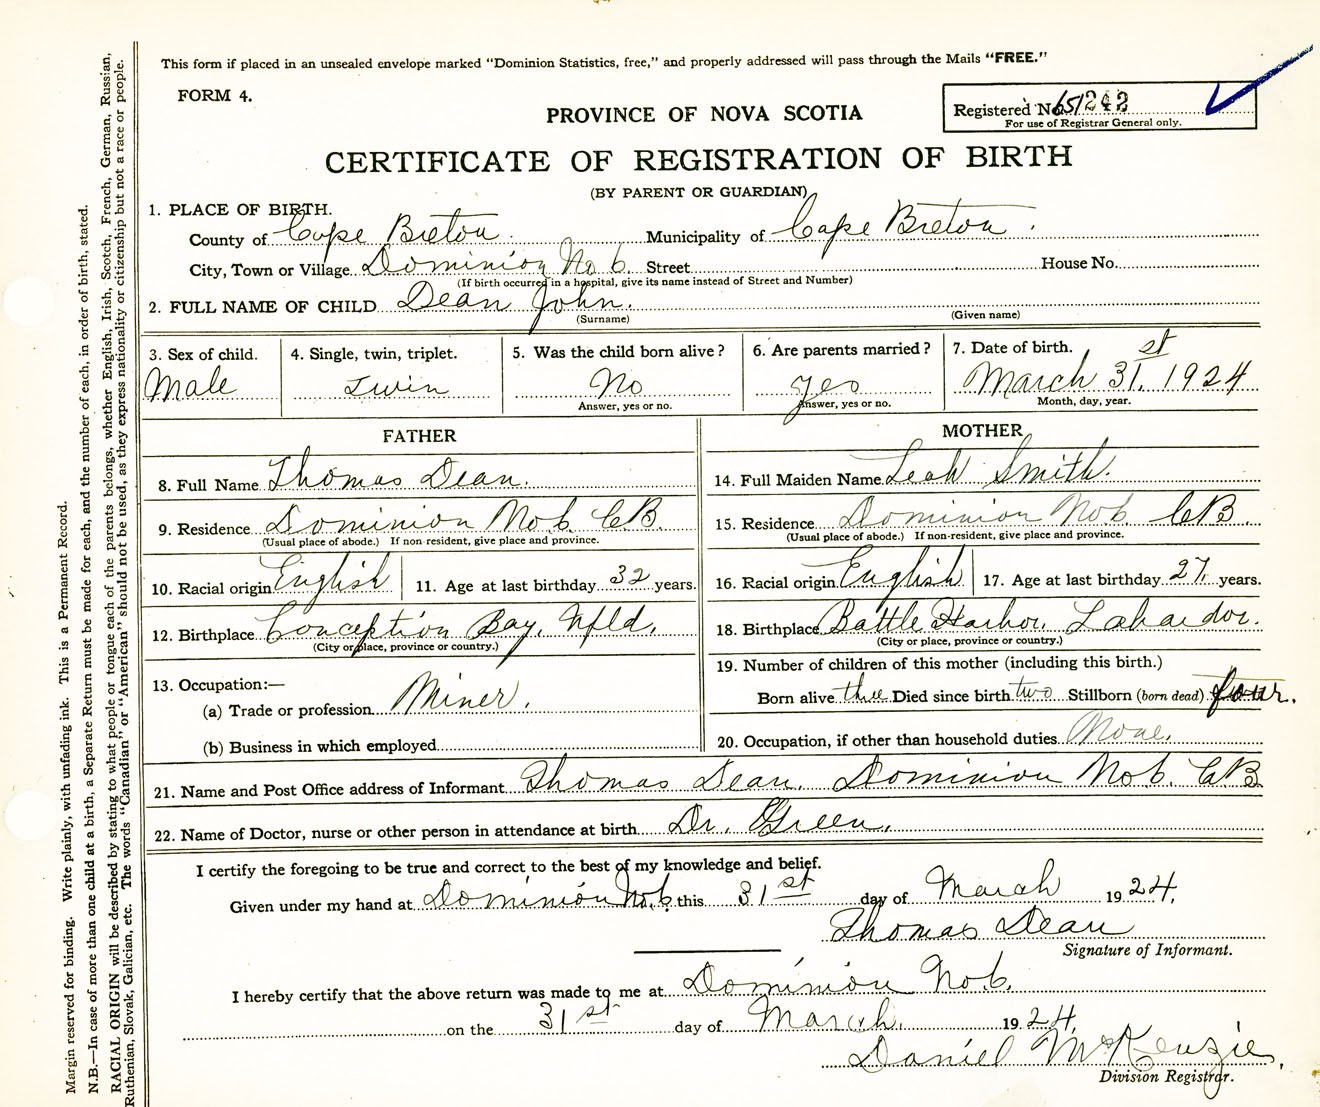 This form if placed in an unsealed envelope marked "Dominion Statistics, free," and properly addressed will pass through the Mails "FREE."
FORM 4.
Registered No. 651242
For use of Registrar General only.
PROVINCE OF NOVA SCOTIA
CERTIFICATE OF REGISTRATION OF BIRTH
(BY PARENT OR GUARDIAN)
1. PLACE OF BIRTH.
County of Cape Breton. Municipality of Cape Breton.
City, Town or Village Dominion No 6. Street House No.
(If birth occurred in a hospital, give its name instead of Street and Number)
2. FULL NAME OF CHILD Dean John.
(Surname) (Given name)
3. Sex of child. 4. Single, twin, triplet. 5. Was the child born alive? 6. Are parents married? 7. Date of birth.
Male Twin No Yes March 31st. 1924
Answer, yes or no. Answer, yes or no. Month, day, year.
FATHER
8. Full Name Thomas Dean.
9. Residence Dominion No 6. CB.
(Usual place of abode.) If non-resident, give place and province.
10. Racial origin English 11. Age at last birthday 32 years.
12. Birthplace Conception Bay, Nfld.
(City or place, province or country.)
13. Occupation:—
(a) Trade or profession Miner.
(b) Business in which employed
MOTHER
14. Full Maiden Name Leah Smith.
15. Residence Dominion No 6. CB
(Usual place of abode.) If non-resident, give place and province.
16. Racial origin English 17. Age at last birthday 27. years.
18. Birthplace Battle Harbor, Labardor.
(City or place, province or country.)
19. Number of children of this mother (including this birth.)
Born alive three Died since birth two Stillborn (born dead) four.
20. Occupation, if other than household duties None.
21. Name and Post Office address of Informant Thomas Dean. Dominion No 6. CB
22. Name of Doctor, nurse or other person in attendance at birth Dr. Green.
I certify the foregoing to be true and correct to the best of my knowledge and belief.
Given under my hand at Dominion No. 6. this 31st day of March 1924.
Thomas Dean
Signature of Informant.
I hereby certify that the above return was made to me at Dominion No. 6.
on the 31st day of March. 1924.
Daniel McKenzie.
Division Registrar.
Margin reserved for binding. Write plainly, with unfading ink. This is a Permanent Record.
N.B.—In case of more than one child at a birth, a Separate Return must be made for each, and the number of each, in order of birth, stated.
RACIAL ORIGIN will be described by stating to what people or tongue each of the parents belongs, whether English, Irish, Scotch, French, German, Russian,
Ruthenian, Slovak, Galician, etc. The words "Canadian" or "American" should not be used, as they express nationality or citizenship but not a race or people.